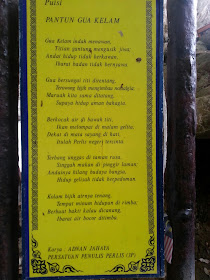 Puisi
PANTUN GUA KELAM
Gua Kelam indah menawan,
Titian gantung mengusik jiwa;
Andai hidup tidak berkawan,
Ibarat badan tidak bernyawa.
Gua bersungai titi direntang,
Terowong bijih mengimbau nostalgia;
Marilah kita sama ditatang,
Supaya hidup aman bahagia.
Berkocak air di bawah titi,
Ikan melompat di malam gelita;
Dekat di mata sayang di hati,
Itulah Perlis negeri tercinta.
Terbang unggas di taman rasa,
Singgah makan di pinggir laman;
Andainya hilang budaya bangsa,
Hidup gelisah tidak berpedoman.
Kolam bijih airnya tenang,
Tempat minum hidupan di rimba;
Berbuat bakti kalau dikenang,
Ibarat air besar ditimba.
Karya : ADNAN JAHAYA
PERSATUAN PENULIS PERLIS (3P)